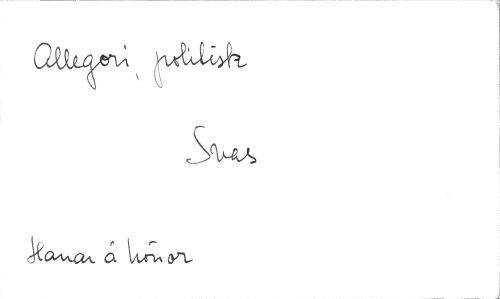 Allegori, politisk
Svas
Hanar á hönor